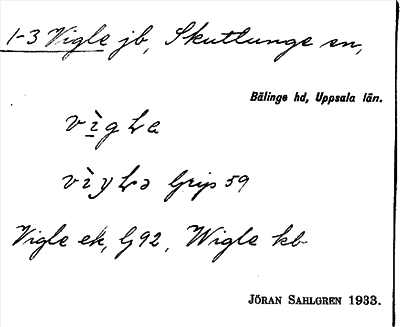 1-3 Vigle jb, Skuttunge sn,
Bälinge hd, Uppsala län.
Grip 59
Vigle ek, G 92, Wigle kb
JÖRAN SAHLGREN 1933.